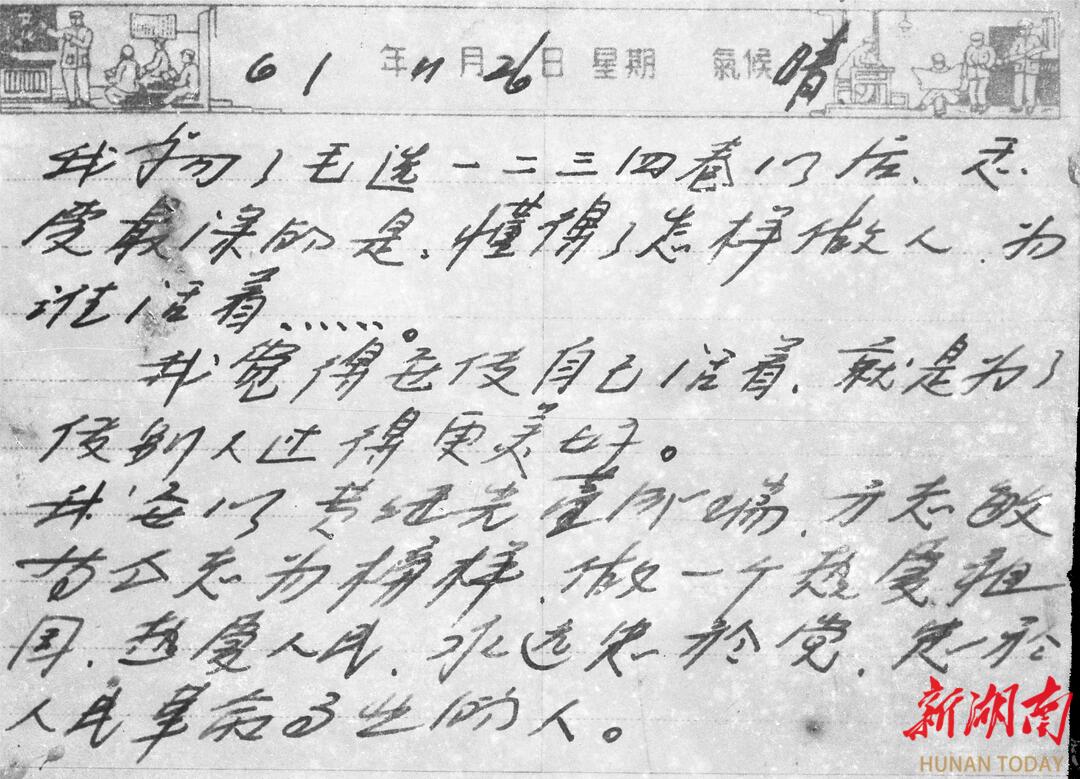 61年11月26日 星期 氣候 晴
我学习了毛选一二三四卷以后、感
受最深的是、懂得了怎样做人、为
谁活着……。
我觉得要使自己活着、就是为了
使别人过得更美好。
我要以黄继光、董存瑞、方志敏
等同志为榜样、做一个热爱祖
国、热爱人民、永远忠於党、忠於
人民革命事业的人。
新湖南
HUNAN TODAY